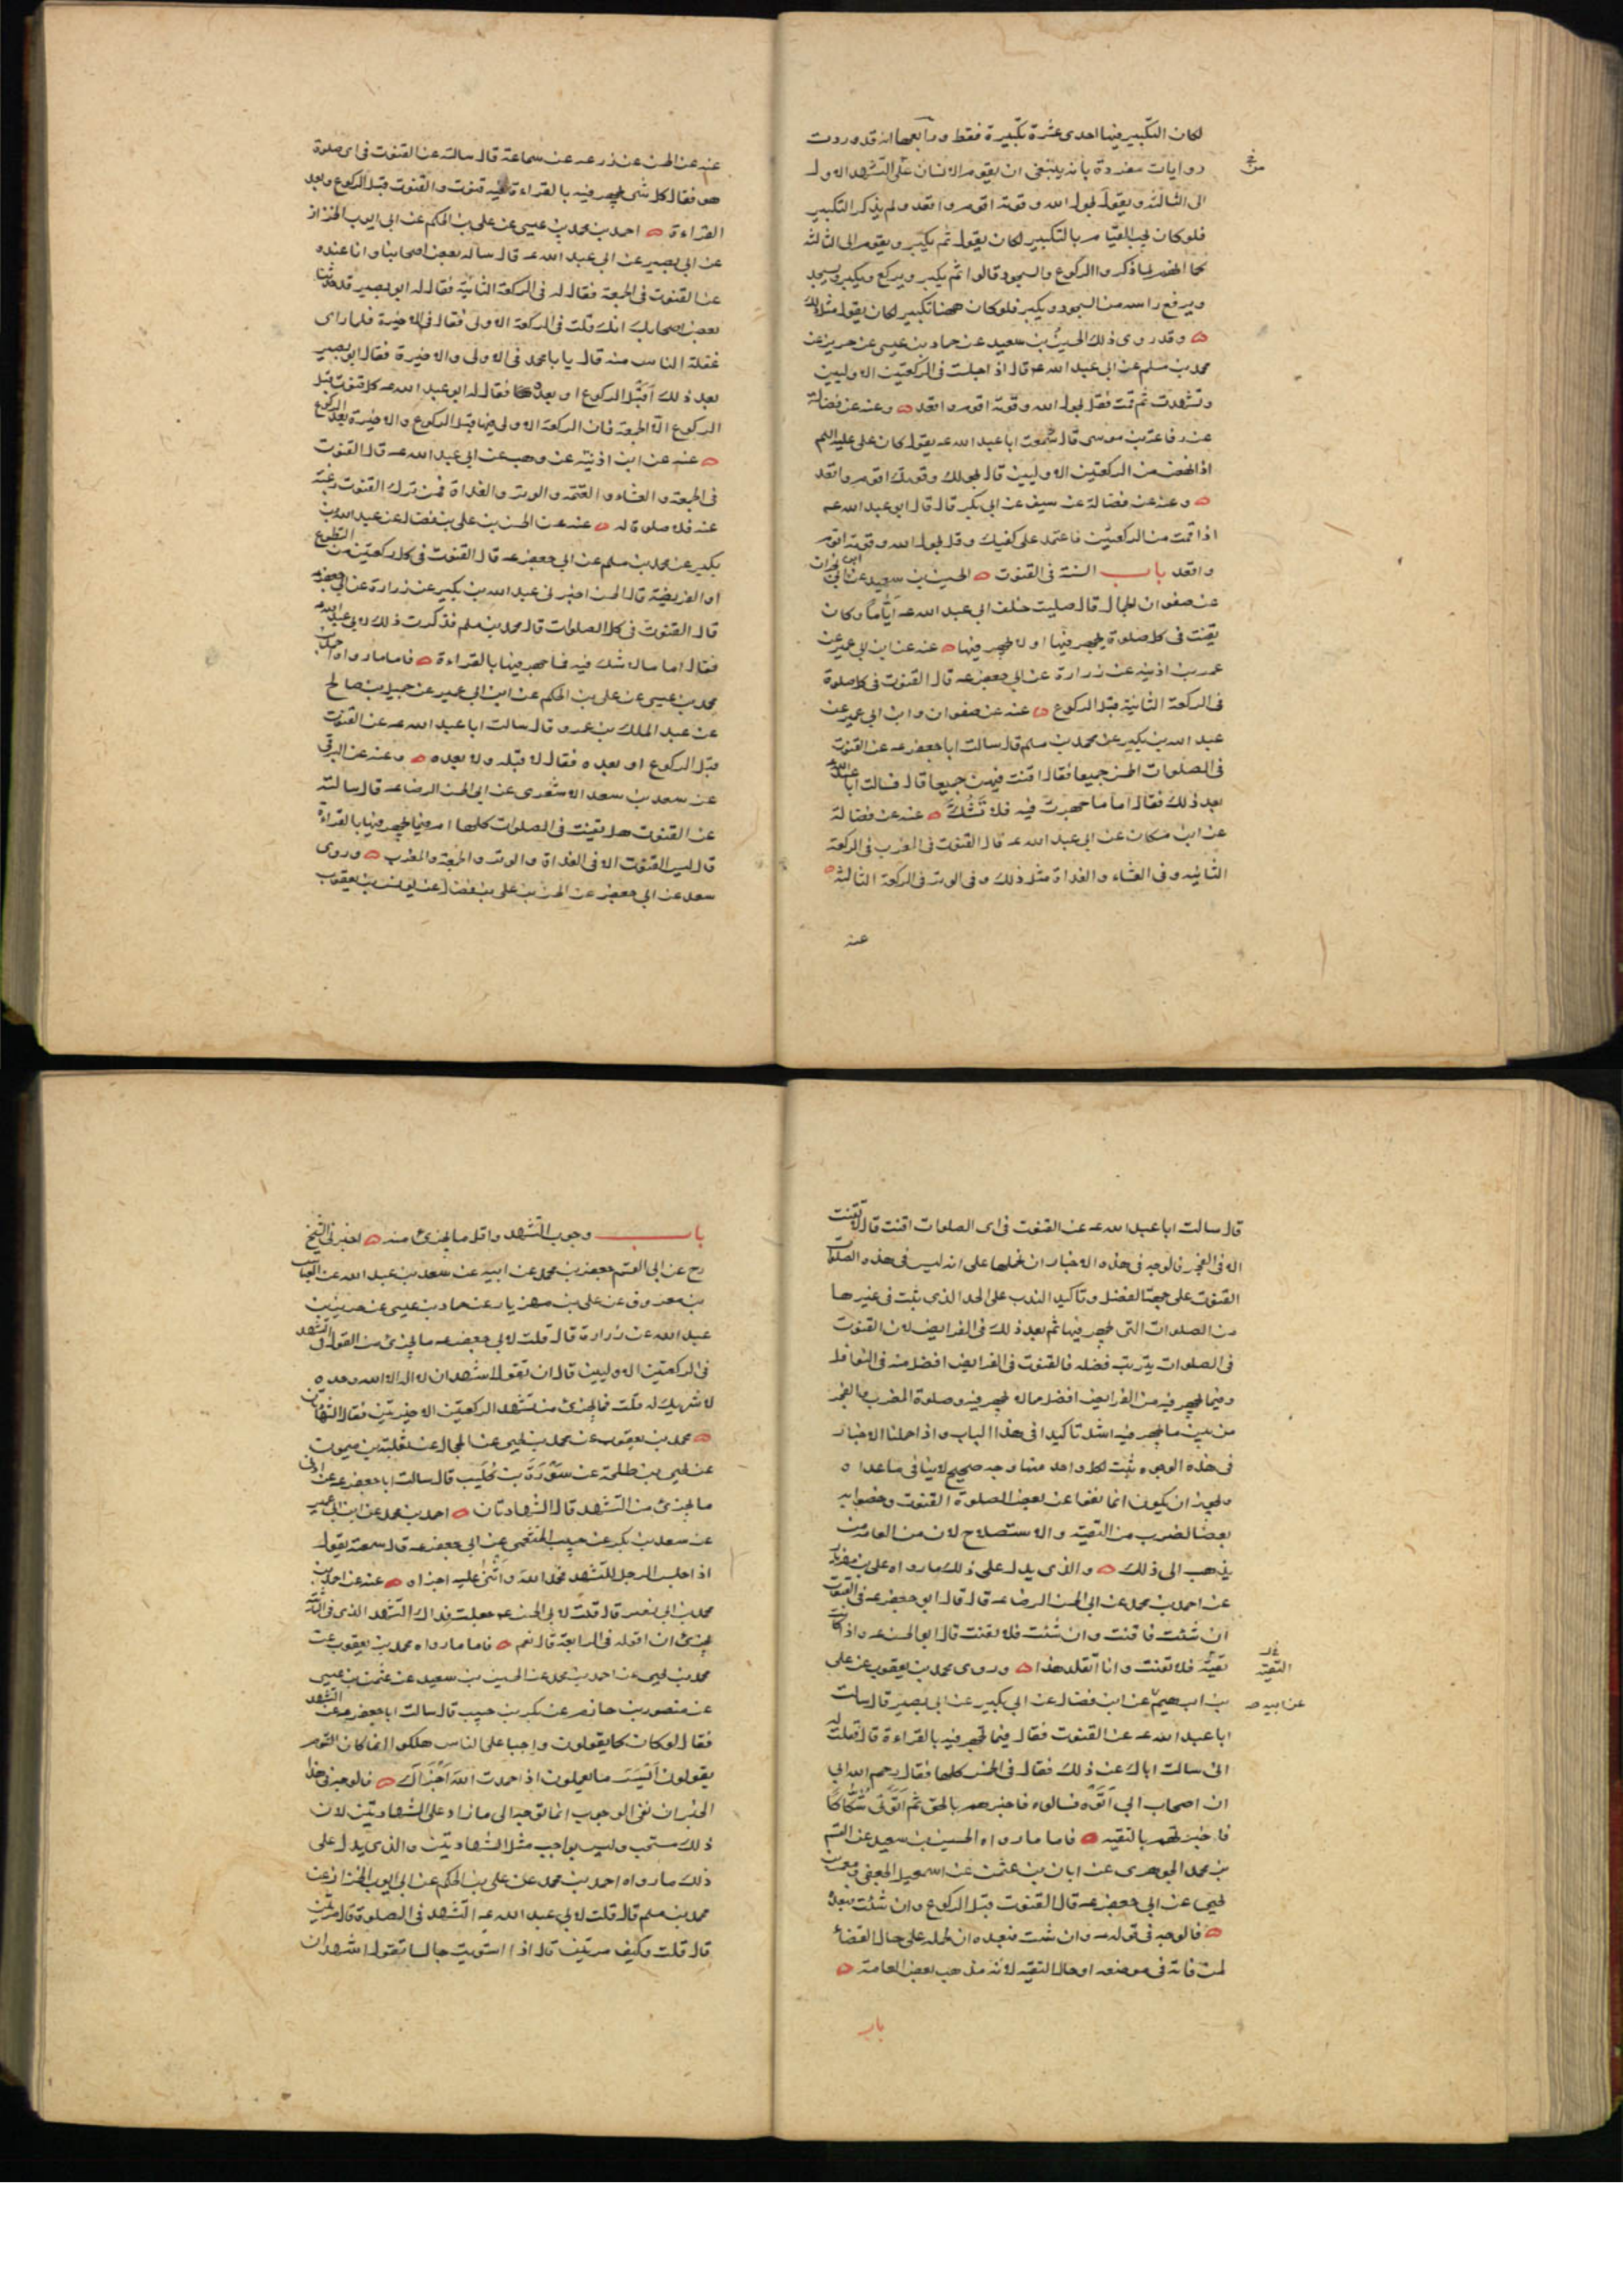 لكان التكبير فيها احدى عشرة تكبيرة فقط ورابعها انه قد وردت
روايات مفردة بانه ينبغى ان يقوم الانسان من التشهد الاول
الى الثالثة ويقول بحول الله وقوته اقوم واقعد ولم يذكر التكبير
فلو كان يجب القيام بالتكبير لكان يقول ثم يكبر ويقوم الى الثالثة
كما انهم لما ذكروا الركوع والسجود قالوا ثم يكبر ويركع ويكبر ويسجد
ويرفع راسه من السجود ويكبر فلو كان ههنا تكبير لكان يقول مثل ذلك
وقد روى ذلك الحسين بن سعيد عن حماد بن عيسى عن حريز عن
محمد بن مسلم عن ابى عبد الله عه قال اذا جلست فى الركعتين الاوليين
وتشهدت ثم قمت فقل بحول الله وقوته اقوم واقعد وعنه عن فضالة
عن رفاعة بن موسى قال سمعت ابا عبد الله عه يقول كان على عليه السلم
اذا نهض من الركعتين الاوليين قال بحولك وقوتك اقوم واقعد
وعنه عن فضالة عن سيف عن ابى بكر قال قال ابو عبد الله عه
اذا قمت من الركعتين فاعتمد على كفيك وقل بحول الله وقوته اقوم
واقعد باب السنة فى القنوت الحسين بن سعيد عن ابن ابى نجران
عن صفوان الجمال قال صليت خلف ابى عبد الله عه اياما وكان
يقنت فى كل صلوة يجهر فيها او لا يجهر فيها عنه عن ابن ابى عمير عن
عمر بن اذينة عن زرارة عن ابى جعفر عه قال القنوت فى كل صلوة
فى الركعة الثانية قبل الركوع عنه عن صفوان وابن ابى عمير عن
عبد الله بن بكير عن محمد بن مسلم قال سالت ابا جعفر عه عن القنوت
فى الصلوات الخمس جميعا فقال اقنت فيهن جميعا قال فسالت ابا عبد الله
بعد ذلك فقال اما ما جهرت فيه فلا تشك عنه عن فضالة
عن ابن مسكان عن ابى عبد الله عه قال القنوت فى المغرب فى الركعة
الثانيه وفى العشاء والغداة مثل ذلك وفى الوتر فى الركعة الثالثة
عنه
عنه عن الحسن عن زرعه عن سماعة قال سالته عن القنوت فى اى صلوة
هو فقال كل شى يجهر فيه بالقراءة فيه قنوت والقنوت قبل الركوع وبعد
القراءة احمد بن محمد بن عيسى عن على بن الحكم عن ابى ايوب الخزاز
عن ابى بصير عن ابى عبد الله عه قال ساله بعض اصحابنا وانا عنده
عن القنوت فى الجمعة فقال له فى الركعة الثانية فقال له ابو بصير قد حدثنا
بعض اصحابك انك قلت فى الركعة الاولى فقال فى الاخيرة فلما راى
غفلة الناس منه قال يا با محمد فى الاولى والاخيرة فقال ابو بصير
بعد ذلك اقبل الركوع او بعده فقال له ابو عبد الله عه كل قنوت قبل
الركوع الا الجمعة فان الركعة الاولى فيها قبل الركوع والاخيرة بعد الركوع
عنه عن ابن اذنية عن وهب عن ابى عبد الله عه قال القنوت
فى الجمعة والعشاء والعتمه والوتر والغداة فمن ترك القنوت رغبة
عنه فلا صلوة له عنه عن الحسن بن على بن فضال عن عبد الله بن
بكير عن محمد بن مسلم عن ابى جعفر عه قال القنوت فى كل ركعتين من التطوع
او الفريضة قال الحسن اخبرنى عبد الله بن بكير عن زرارة عن ابى جعفر عه
قال القنوت فى كل الصلوات قال محمد بن مسلم فذكرت ذلك لابى عبد الله عه
فقال اما ما لا شك فيه فما جهر فيها بالقراءة فاما ما رواه احمد بن
محمد بن عيسى عن على بن الحكم عن ابن ابى عمير عن جميل بن صالح
عن عبد الملك بن عمرو قال سالت ابا عبد الله عه عن القنوت
قبل الركوع او بعده فقال لا قبله ولا بعده وعنه عن البرقى
عن سعد بن سعد الاشعرى عن ابى الحسن الرضا عه قال سالته
عن القنوت هل يقنت فى الصلوات كلها ام فيما يجهر فيها بالقراءة
قال ليس القنوت الا فى الغداة والوتر والجمعة والمغرب وروى
سعد عن ابى جعفر عن الحسن بن على بن فضال عن يونس بن يعقوب
قال سالت ابا عبد الله عه عن القنوت فى اى الصلوات اقنت قال لا تقنت
الا فى الفجر فالوجه فى هذه الاخبار ان نحملها على انه ليس فى هذه الصلوات
القنوت على جهة الفضل وتاكيد الندب على الحد الذى ثبت فى غيرها
من الصلوات التى يجهر فيها ثم بعد ذلك فى الفرايض لان القنوت
فى الصلوات يترتب فضله فالقنوت فى الفرايض افضل منه فى النوافل
وفيما يجهر فيه من الفرايض افضل مما لا يجهر فيه وصلوة المغرب والفجر
من بين ما يجهر فيه اشد تاكيدا فى هذا الباب واذا حملنا الاخبار
فى هذه الوجوه ثبت لكل واحد منها وجه صحيح لا ينافى ما عداه
ويجوز ان يكون انما نفوا عن بعض الصلوة القنوت وخصوا به
بعضا لضرب من التقية والاستصلاح لان من العامة من
يذهب الى ذلك والذى يدل على ذلك ما رواه على بن مهزيار
عن احمد بن محمد عن ابى الحسن الرضا عه قال قال ابو جعفر عه فى القنوت
ان شئت فاقنت وان شئت فلا تقنت قال ابو الحسن عه واذا كانت
تقية فلا تقنت وانا اتقلد هذا وروى محمد بن يعقوب عن على
التقيه
بن ابرهيم عن ابن فضال عن ابى بكير عن ابى بصير قال سالت
عن ابيه صح
ابا عبد الله عه عن القنوت فقال فيما تجهر فيه بالقراءة قال قلت له
انى سالت اباك عن ذلك فقال فى الخمس كلها فقال رحم الله ابى
ان اصحاب ابى اتوه فسالوه فاخبرهم بالحق ثم اتونى شكاكا
فاخبرتهم بالتقيه فاما ما رواه الحسين بن سعيد عن القسم
بن محمد الجوهرى عن ابان بن عثمن عن اسمعيل الجعفى ومعمر بن
يحيى عن ابى جعفر عه قال القنوت قبل الركوع وان شئت فبعده
فالوجه فى قوله عه وان شئت فبعده ان نحمله على حال القضاء
لمن فاته فى موضعه او حال التقيه لانه مذهب بعض العامة
باب
باب وجوب التشهد واقل ما يجزئ منه اخبرنى الشيخ
رح عن ابى القسم جعفر بن محمد عن ابيه عن سعد بن عبد الله عن العباس
بن معروف عن على بن مهزيار عن حماد بن عيسى عن حريز بن
عبد الله عن زرارة قال قلت لابى جعفر عه ما يجزئ من القول فى التشهد
فى الركعتين الاوليين قال ان تقول اشهد ان لا اله الا الله وحده
لا شريك له قلت فما يجزئ من تشهد الركعتين الاخيرتين فقال الشهادتان
محمد بن يعقوب عن محمد بن يحيى عن الحجال عن ثعلبة بن ميمون
عن يحيى بن طلحة عن سورة بن كليب قال سالت ابا جعفر عه عن ادنى
ما يجزئ من التشهد قال الشهادتان احمد بن محمد عن ابن ابى عمير
عن سعد بن بكر عن حبيب الخثعمى عن ابى جعفر عه قال سمعته يقول
اذا جلس الرجل للتشهد فحمد الله واثنى عليه اجزاه عنه عن احمد بن
محمد بن ابى نصر قال قلت لابى الحسن عه جعلت فداك التشهد الذى فى الثانية
يجزئ ان اقوله فى الرابعة قال نعم فاما ما رواه محمد بن يعقوب عن
محمد بن يحيى عن احمد بن محمد عن الحسين بن سعيد عن عثمن بن عيسى
عن منصور بن حازم عن بكر بن حبيب قال سالت ابا جعفر عه عن التشهد
فقال لو كان كما يقولون واجبا على الناس هلكوا انما كان القوم
يقولون ايسر ما يعلمون اذا حمدت الله اجزاك فالوجه فى هذا
الخبر ان نفى الوجوب انما توجه الى ما زاد على الشهادتين لان
ذلك مستحب وليس بواجب مثل الشهادتين والذى يدل على
ذلك ما رواه احمد بن محمد عن على بن الحكم عن ابى ايوب الخزاز عن
محمد بن مسلم قال قلت لابى عبد الله عه التشهد فى الصلوة قال مرتين
قال قلت وكيف مرتين قال اذا استويت جالسا فقل اشهد ان